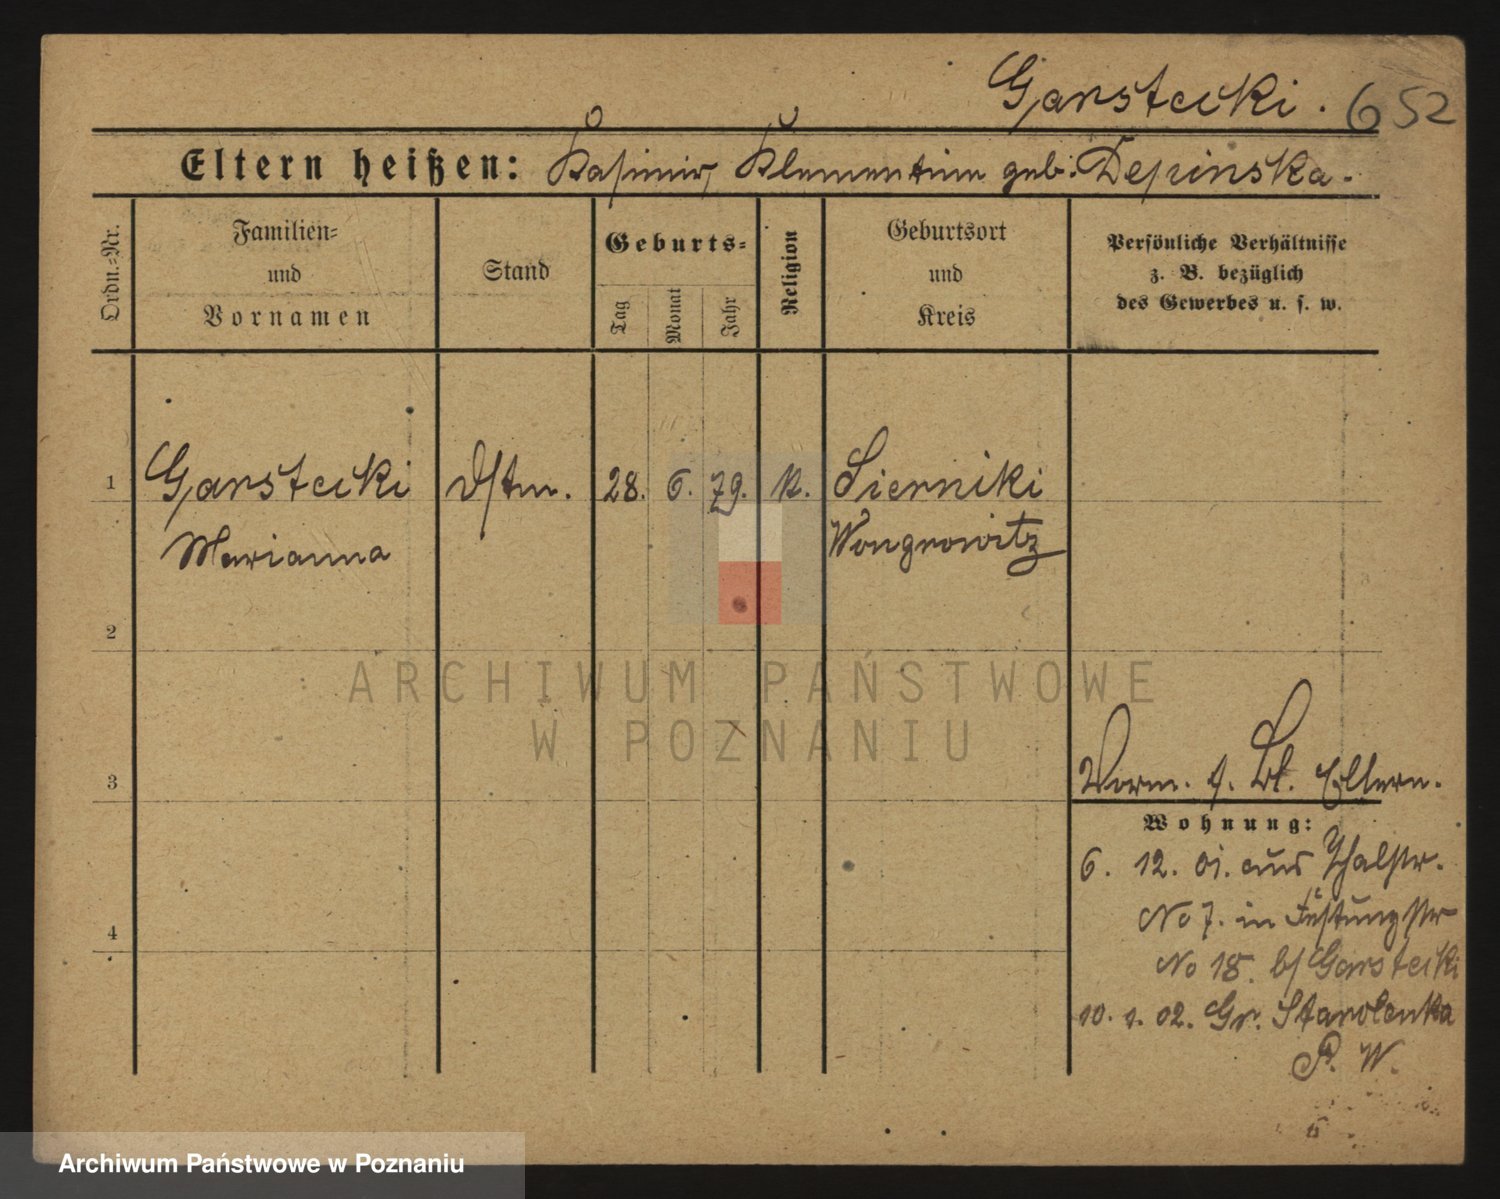 Garstecki. 652
Eltern heißen: Kasimir, Klementine geb. Depinska.
Ordn.-Nr.
Familien-
und
Vornamen
Stand
Geburts-
Tag
Monat
Jahr
Religion
Geburtsort
und
Kreis
Persönliche Verhältnisse
z. B. bezüglich
des Gewerbes u. s. w.
1 Garstecki Dstm. 28. 6. 79. k. Sierniki
Marianna Wongrowitz
2
3
Vorm. s. Bl. Eltern.
Wohnung:
6. 12. 01. aus Thalstr.
No 7. in Festungstr
No 18. b/ Garstecki
4
10. 1. 02. Gr. Starolenka
P. W.
ARCHIWUM PAŃSTWOWE
W POZNANIU
Archiwum Państwowe w Poznaniu